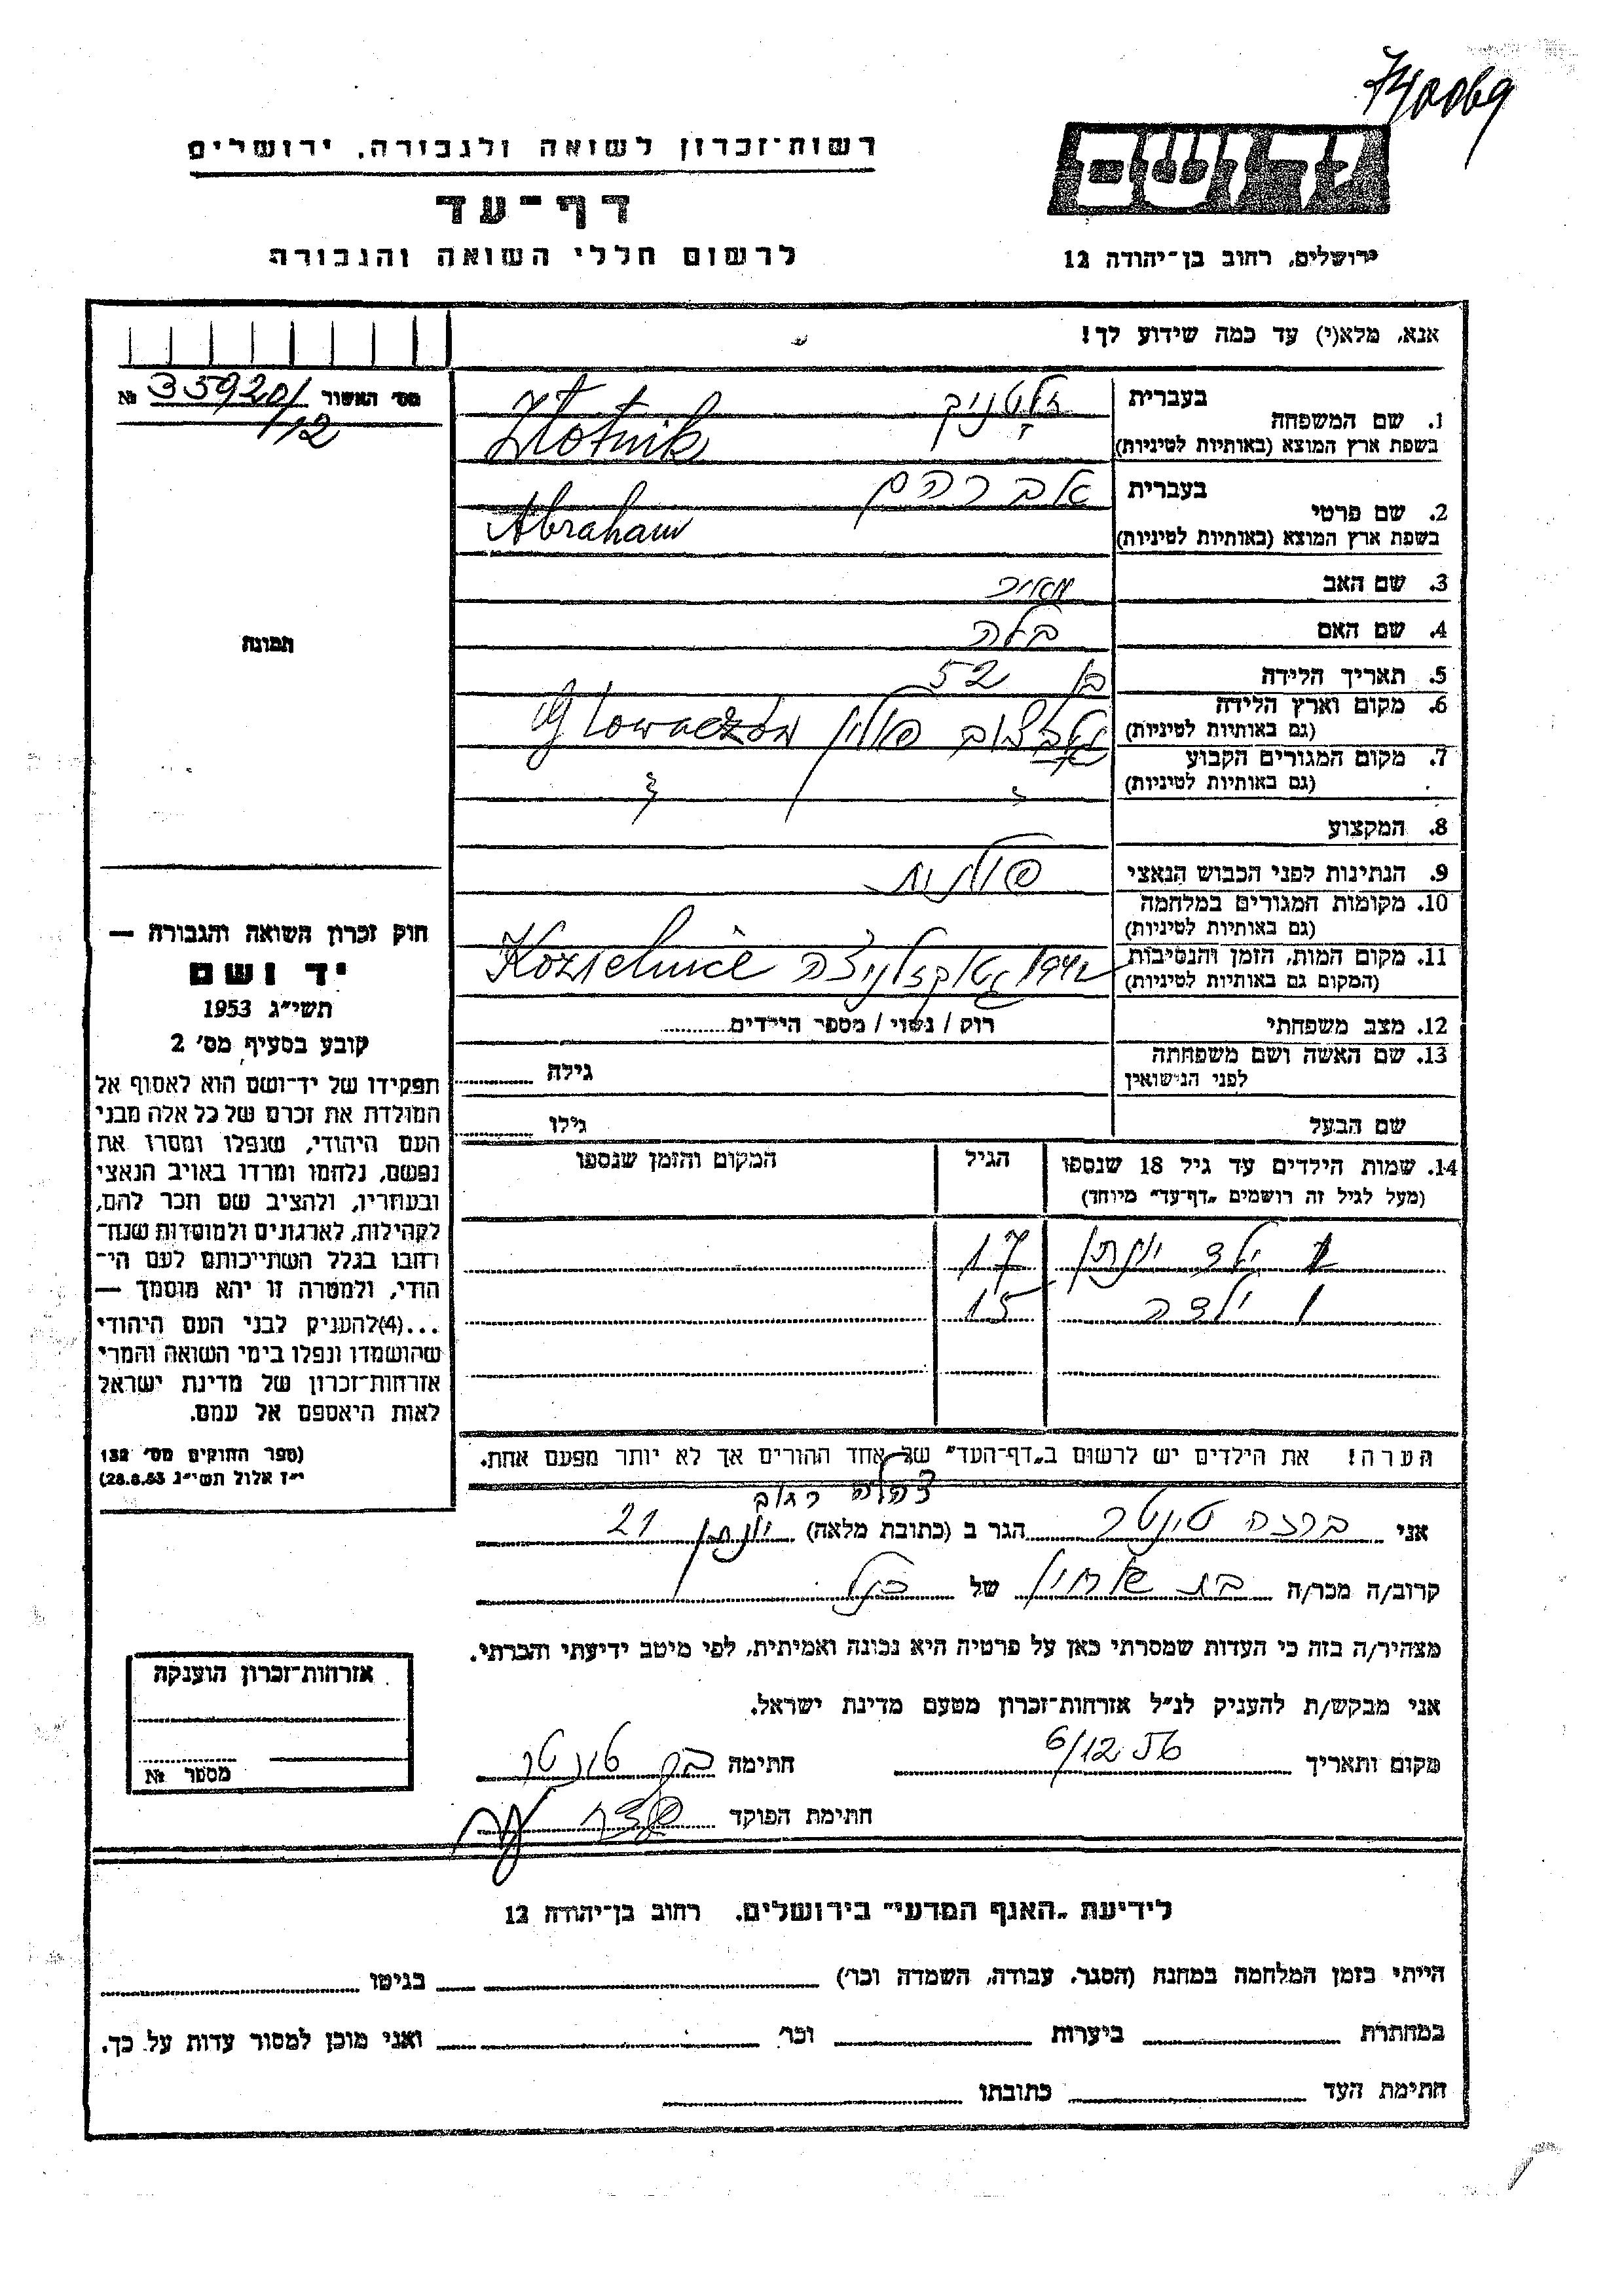 740069
רשות־זכרון לשואה ולגבורה, ירושלים
דף־עד
לרשום חללי השואה והגבורה
ירושלים, רחוב בן־יהודה 12
אנא, מלא(י) עד כמה שידוע לך!
מס׳ האשור 35920/12 №
1. שם המשפחה
בעברית זלטניק
בשפת ארץ המוצא (באותיות לטיניות) Złotnik
2. שם פרטי
בעברית אברהם
בשפת ארץ המוצא (באותיות לטיניות) Abraham
3. שם האב מאיר
4. שם האם בלה
5. תאריך הלידה בן 52
6. מקום וארץ הלידה
(גם באותיות לטיניות) פולין Glowaczów
7. מקום המגורים הקבוע
(גם באותיות לטיניות)
8. המקצוע
9. הנתינות לפני הכבוש הנאצי פולנית
10. מקומות המגורים במלחמה
(גם באותיות לטיניות)
11. מקום המות, הזמן והנסיבות
(המקום גם באותיות לטיניות) 1942 Kozielnice
12. מצב משפחתי רוק / נשוי / מספר הילדים
13. שם האשה ושם משפחתה
לפני הנישואין גילה
שם הבעל גילו
14. שמות הילדים עד גיל 18 שנספו
(מעל לגיל זה רושמים „דף־עד״ מיוחד)
הגיל
המקום והזמן שנספו
1 ילד יונתן 17
1 ילדה 15
הערה! את הילדים יש לרשום ב„דף־העד״ של אחד ההורים אך לא יותר מפעם אחת.
תמונה
חוק זכרון השואה והגבורה —
יד ושם
תשי״ג 1953
קובע בסעיף מס׳ 2
תפקידו של יד־ושם הוא לאסוף אל
המולדת את זכרם של כל אלה מבני
העם היהודי, שנפלו ומסרו את
נפשם, נלחמו ומרדו באויב הנאצי
ובעוזריו, ולהציב שם וזכר להם,
לקהילות, לארגונים ולמוסדות שנח־
רבו בגלל השתייכותם לעם הי־
הודי, ולמטרה זו יהא מוסמך —
...(4)להעניק לבני העם היהודי
שהושמדו ונפלו בימי השואה והמרי
אזרחות־זכרון של מדינת ישראל
לאות היאספם אל עמם.
(ספר החוקים מס׳ 132
י״ז אלול תשי״ג 28.8.53)
אני ברכה הגר ב (כתובת מלאה) רחוב יונתן 21
קרוב/ה מכר/ה בת של
מצהיר/ה בזה כי העדות שמסרתי כאן על פרטיה היא נכונה ואמיתית, לפי מיטב ידיעתי והכרתי.
אני מבקש/ת להעניק לנ״ל אזרחות־זכרון מטעם מדינת ישראל.
מקום ותאריך 6/12 56 חתימה
חתימת הפוקד
אזרחות־זכרון הוענקה
מספר №
לידיעת „האגף המדעי״ בירושלים, רחוב בן־יהודה 12
הייתי בזמן המלחמה במחנה (הסגר, עבודה, השמדה וכו׳) בגיטו
במחתרת ביערות וכו׳ ואני מוכן למסור עדות על כך.
חתימת העד כתובתו